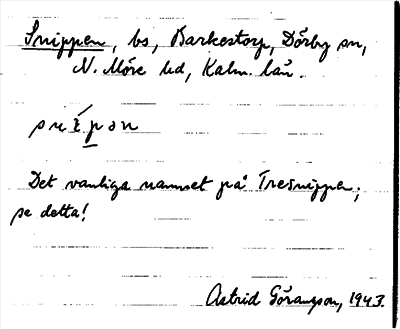 Snippen, bs, Barkestorp, Dörby sn,
N. Möre hd, Kalm. län.
Det vanliga namnet på Tresnippen;
se detta!
Astrid Göransson, 1943.